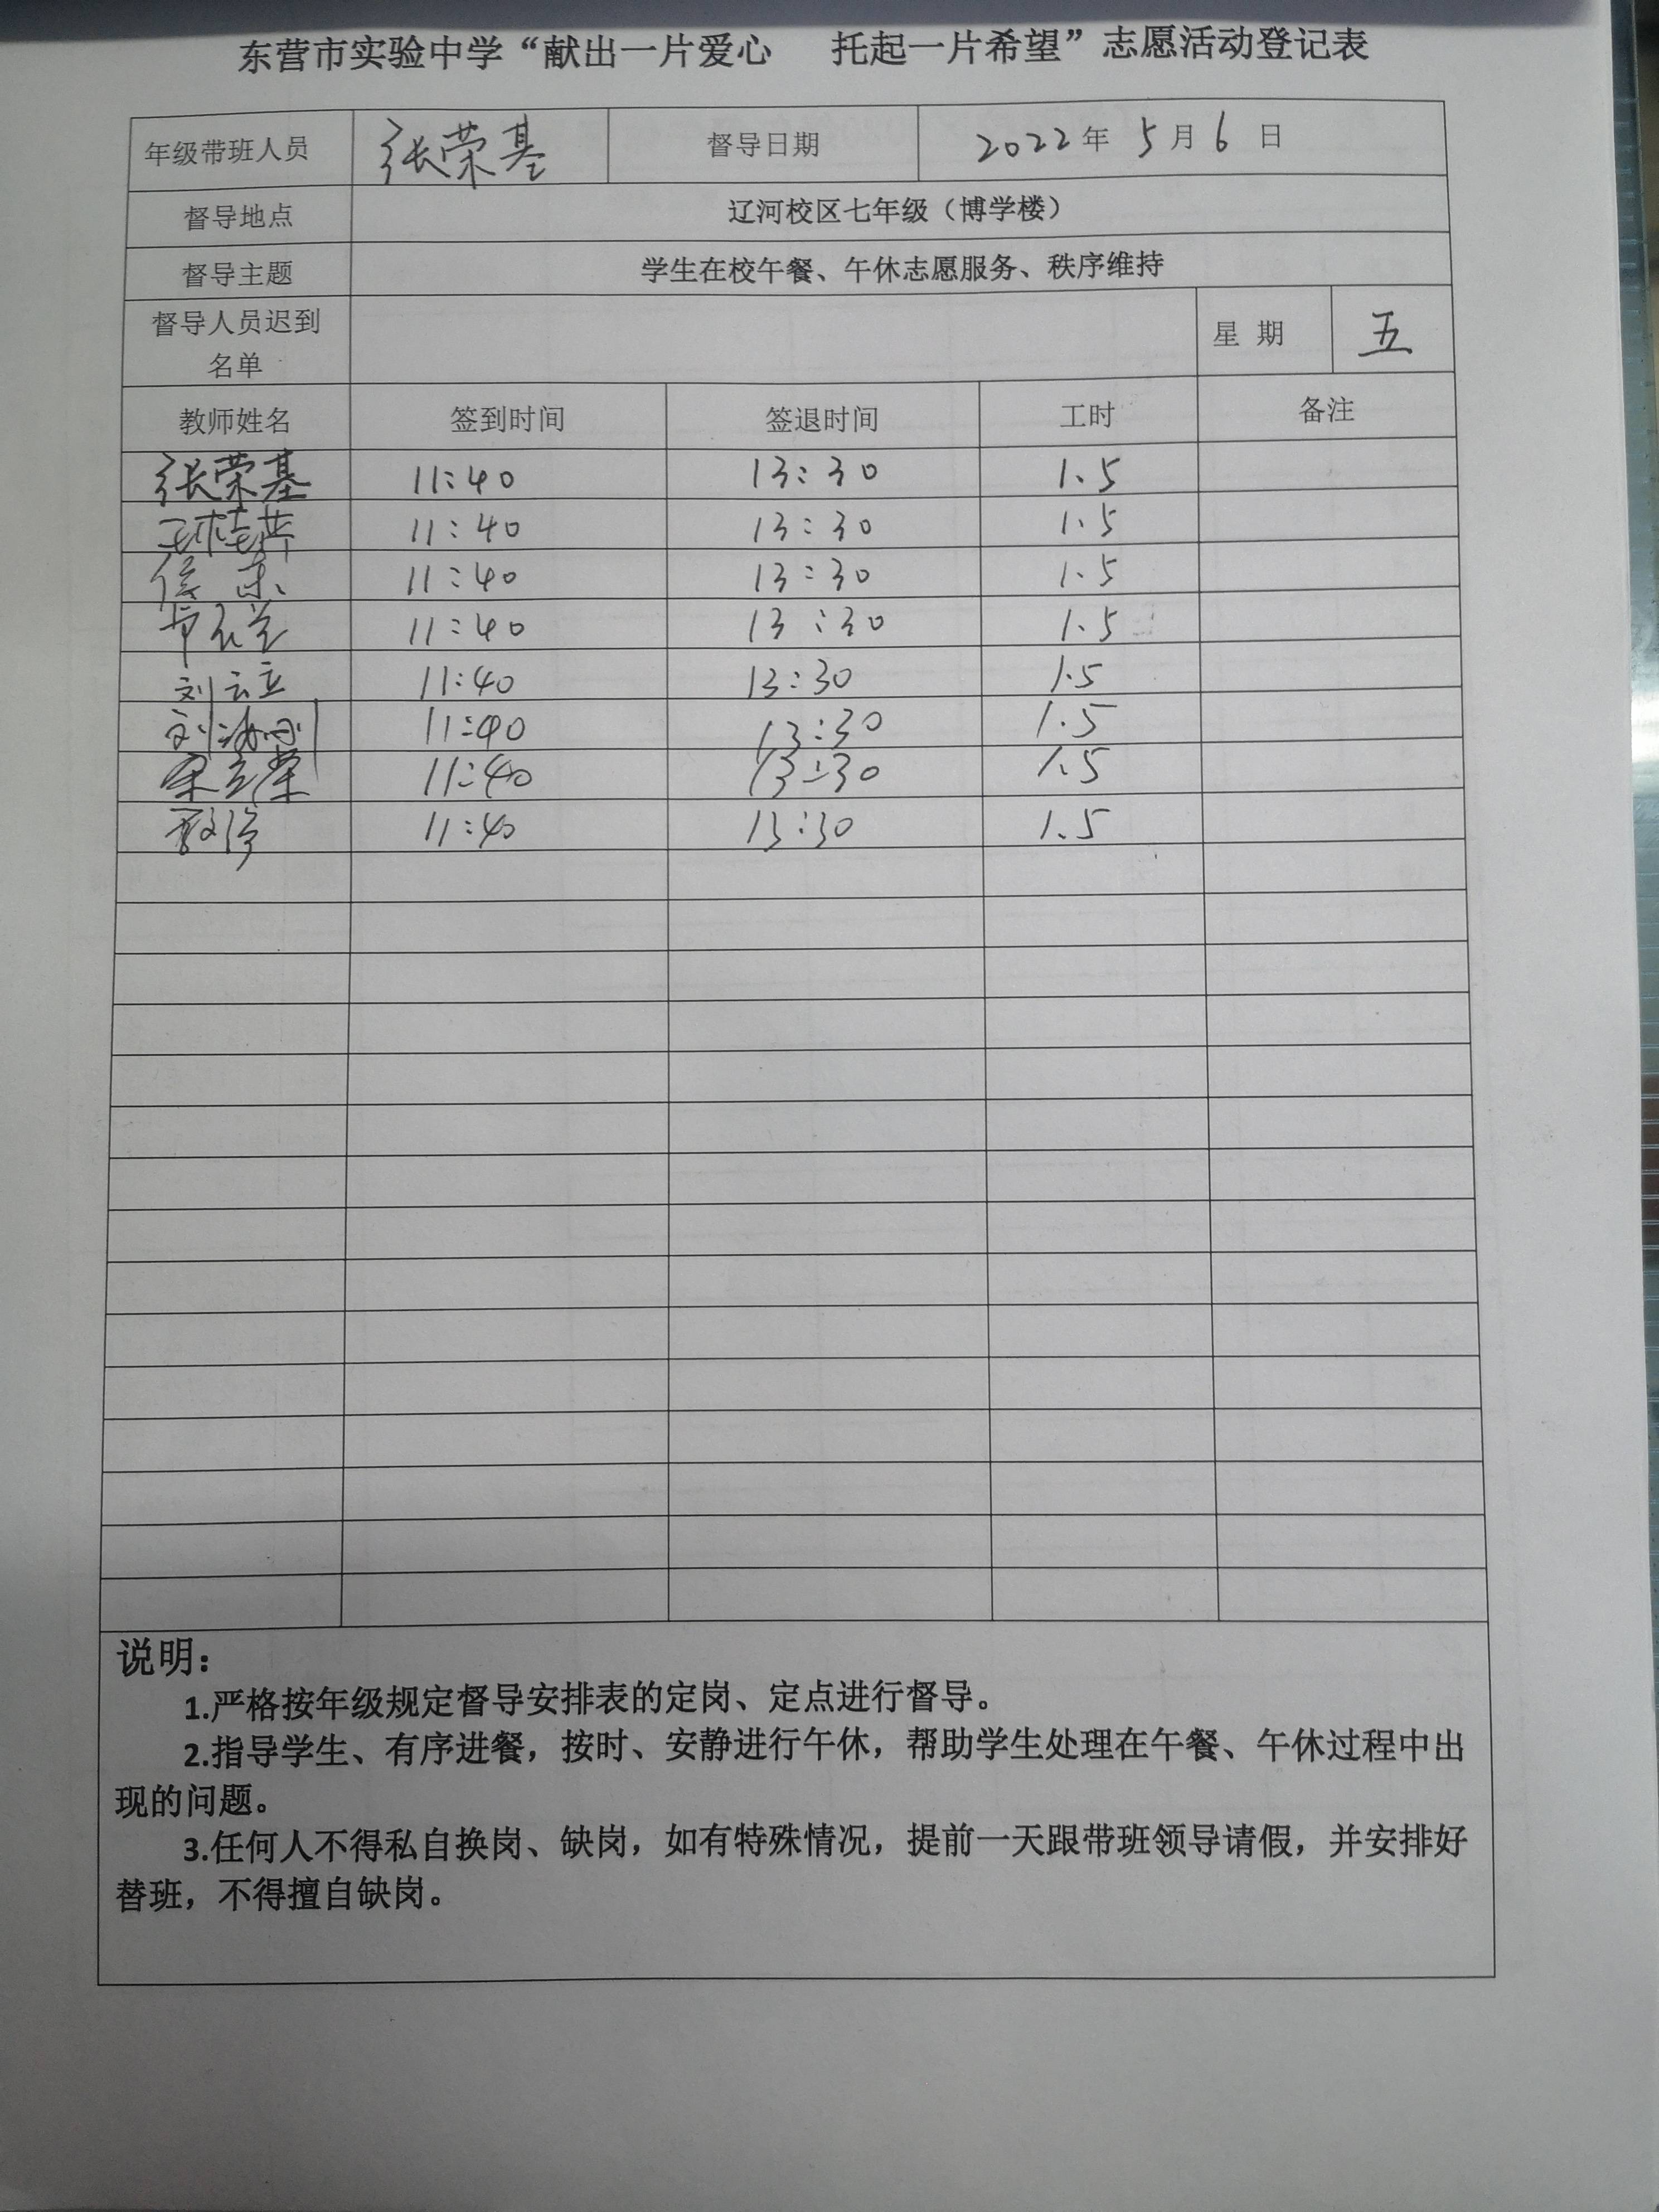 东营市实验中学“献出一片爱心 托起一片希望”志愿活动登记表
年级带班人员 张荣基 督导日期 2022年 5月 6日
督导地点 辽河校区七年级（博学楼）
督导主题 学生在校午餐、午休志愿服务、秩序维持
督导人员迟到名单 星 期 五
教师姓名 签到时间 签退时间 工时 备注
张荣基 11:40 13:30 1.5
11:40 13:30 1.5
11:40 13:30 1.5
11:40 13:30 1.5
刘云立 11:40 13:30 1.5
刘 11:40 13:30 1.5
11:40 13:30 1.5
11:40 13:30 1.5
说明：
1.严格按年级规定督导安排表的定岗、定点进行督导。
2.指导学生、有序进餐，按时、安静进行午休，帮助学生处理在午餐、午休过程中出
现的问题。
3.任何人不得私自换岗、缺岗，如有特殊情况，提前一天跟带班领导请假，并安排好
替班，不得擅自缺岗。